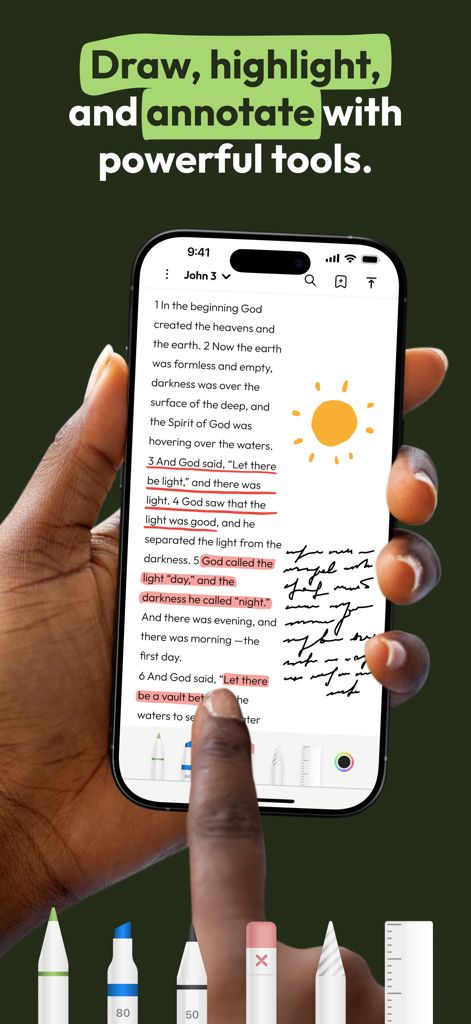 Draw, highlight,
and annotate with
powerful tools.
9:41
John 3
1 In the beginning God
created the heavens and
the earth. 2 Now the earth
was formless and empty,
darkness was over the
surface of the deep, and
the Spirit of God was
hovering over the waters.
3 And God said, “Let there
be light,” and there was
light. 4 God saw that the
light was good, and he
separated the light from the
darkness. 5 God called the
light “day,” and the
darkness he called “night.”
And there was evening, and
there was morning —the
first day.
6 And God said, “Let there
be a vault
waters to
80
50